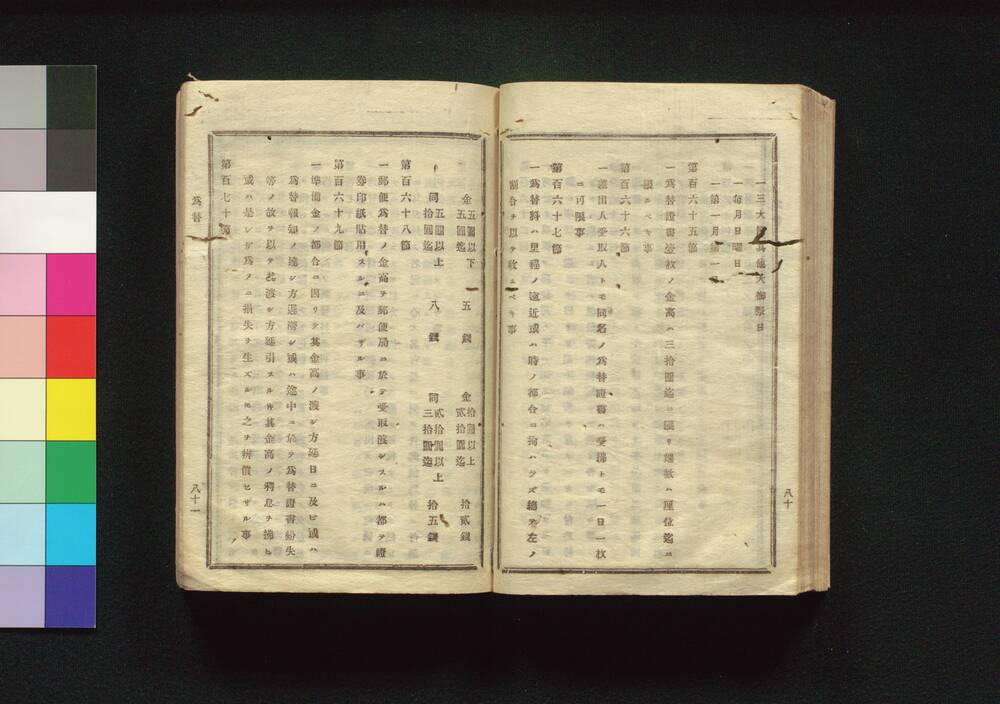 一三大節其他大御祭日
一每月日曜日
一第一月第一日
第百六十五節
一爲替證書壹枚ノ金高ハ三拾圓迄ニ限リ端數ハ厘位迄ニ
限ルベキ事
第百六十六節
一差出人受取人トモ同名ノ爲替證書ハ受拂トモ一日一枚
ニ可限事
第百六十七節
一爲替料ハ里程ノ遠近或ハ時ノ都合ニ拘ハラズ總テ左ノ
割合ヲ以テ收ムベキ事
八十
金五圓以下五圓迄 五錢 金拾圓以上貳拾圓迄 拾貳錢
同五圓以上拾圓迄 八錢 同貳拾圓以上三拾圓迄 拾五錢
第百六十八節
一郵便爲替ノ金高ヲ郵便局ニ於テ受取渡シスルハ都テ證
券印紙貼用スルニ及バザル事
第百六十九節
一準備金ノ都合ニ因リテ其金高ノ渡シ方延日ニ及ビ或ハ
爲替報知ノ達シ方遲滯シ或ハ途中ニ於テ爲替證書紛失
等ノ故ヲ以テ其渡シ方延引スルモ其金高ノ利息ヲ拂ヒ
或ハ是レガ爲メニ損失ヲ生ズルモ之ヲ辨償セザル事
第百七十節
爲替
八十一